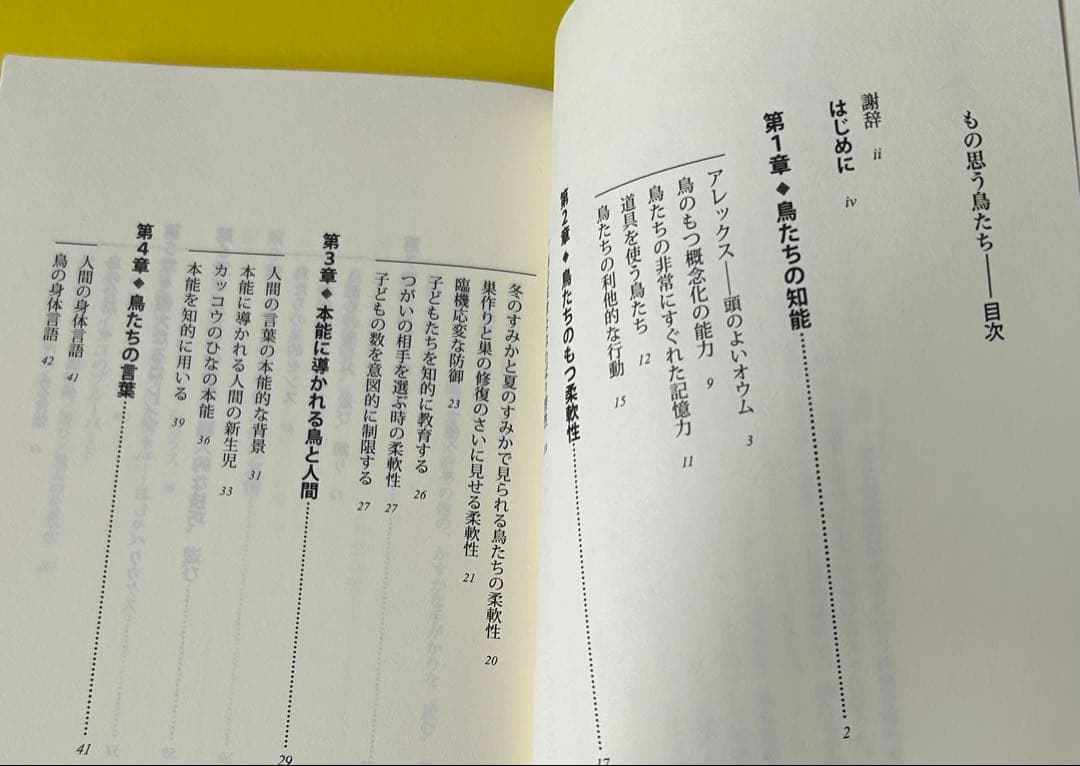 もの思う鳥たち――目次
謝辞 ii
はじめに iv
第1章◆鳥たちの知能 2
アレックス――頭のよいオウム 3
鳥のもつ概念化の能力 9
鳥たちの非常にすぐれた記憶力 11
道具を使う鳥たち 12
鳥たちの利他的な行動 15
第2章◆鳥たちのもつ柔軟性 17
冬のすみかと夏のすみかで見られる鳥たちの柔軟性 20
巣作りと巣の修復のさいに見せる柔軟性 21
臨機応変な防御 23
子どもたちを知的に教育する 26
つがいの相手を選ぶ時の柔軟性 27
子どもの数を意図的に制限する 27
第3章◆本能に導かれる鳥と人間 29
人間の言葉の本能的な背景 31
本能に導かれる人間の新生児 33
カッコウのひなの本能 36
本能を知的に用いる 39
第4章◆鳥たちの言葉 41
人間の身体言語 41
鳥の身体言語 42